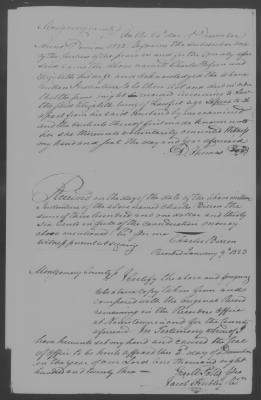 Montgomery County
On the 26 day of December
Anno Domini 1822 Before me the subscriber one
of the Justices of the peace in and for the County afore
said came the above named Charles Pyson and
Elizabeth his wife and acknowledged the above
written Indenture to be their act and deed and
that the same might be recorded according to Law
the said Elizabeth being of Lawful age separate and
apart from her said husband by me examined
and the contents thereof first made known unto
her she thereunto voluntarily consented Witness
my hand and seal the day and year aforesaid
Thomas
Received on the day of the date of the above written
Indenture of the above named
sum of three hundred and one dollar and thirty
six Cents in full of the consideration money
above mentioned
Witness present at signing
Charles
Recorded January 9th 1823
Montgomery County ss I Certify the above and foregoing
to be a true copy taken from and
compared with the original Record
remaining in the Recorders Office
at Norristown in and for the County
aforesaid In Testimony whereof I
have hereunto set my hand and caused the seal
of Office to be hereto affixed the 2 day of
in the year of our Lord one thousand eight
hundred and twenty three